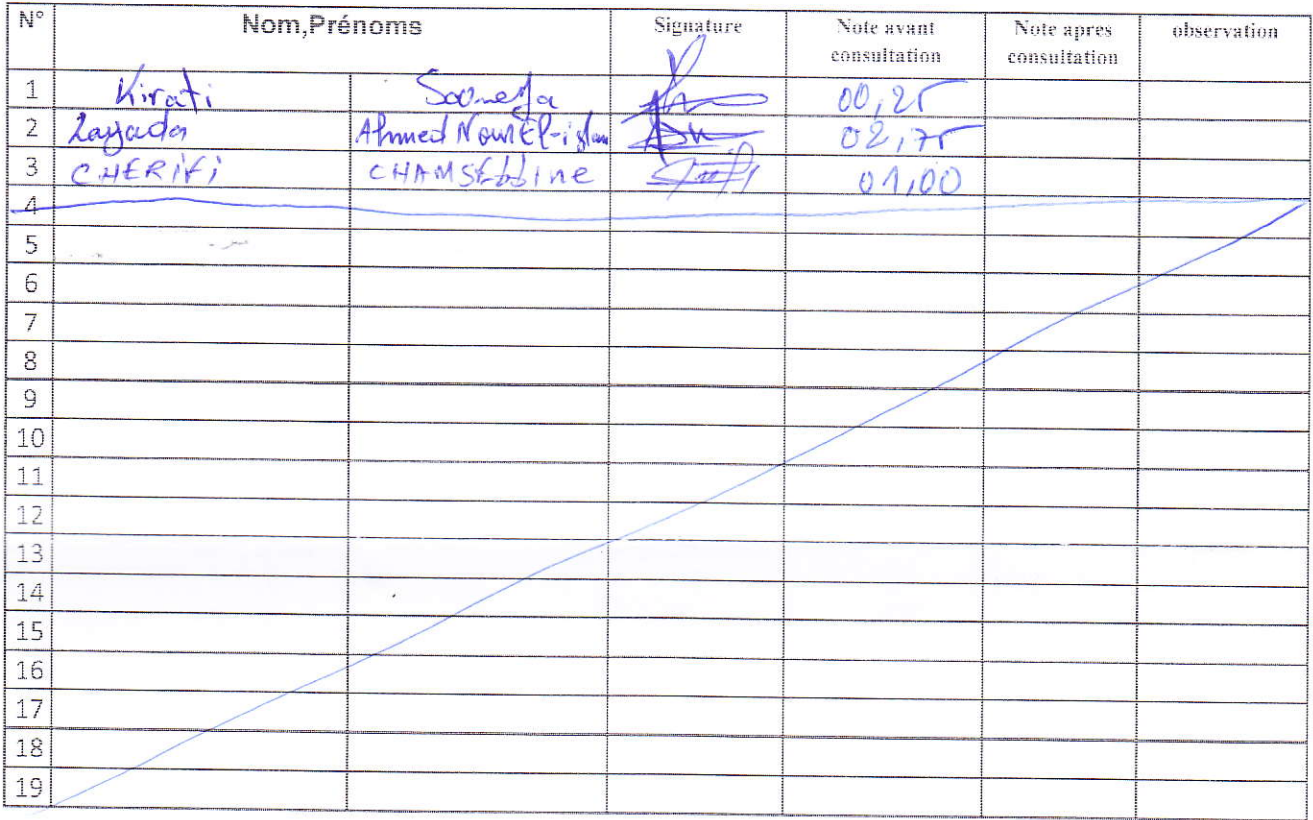 N° Nom,Prénoms Signature Note avant consultation Note apres consultation observation
1 Kirati Soumeya 00,25
2 Zayada Ahmed NourEl-islam 02,75
3 CHERIFI CHAMSEDDINE 01,00
4
5
6
7
8
9
10
11
12
13
14
15
16
17
18
19